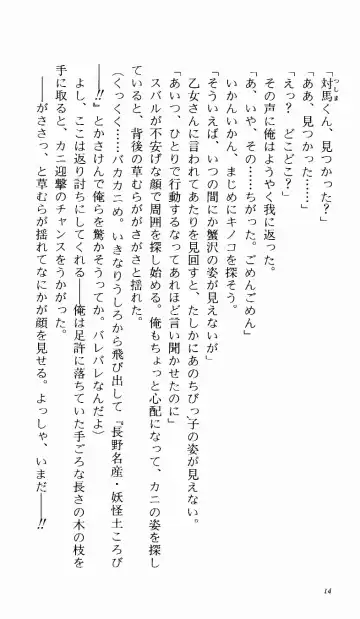 「対馬くん、見つかった？」
つしま
「ああ、見つかった……」
「えっ？　どこどこ？」
「あ、いや、その……ちがった。ごめんごめん」
その声に俺はようやく我に返った。
いかんいかん、まじめにキノコを探そう。
「そういえば、いつの間にか蟹沢の姿が見えないが」
乙女さんに言われてあたりを見回すと、たしかにあのちびっ子の姿が見えない。
「あいつ、ひとりで行動するなってあれほど言い聞かせたのに」
スバルが不安げな顔で周囲を探し始める。俺もちょっと心配になって、カニの姿を探し
ていると、背後の草むらががさがさと揺れた。
（くっくく……バカカニめ。いきなりうしろから飛び出して『長野名産・妖怪土ころび
――!!』とかさけんで俺らを驚かそうってか。バレバレなんだよ）
よし、ここは返り討ちにしてくれる――俺は足許に落ちていた手ごろな長さの木の枝を
手に取ると、カニ迎撃のチャンスをうかがった。
――がささっ、と草むらが揺れてなにかが顔を見せる。よっしゃ、いまだ――!!
14